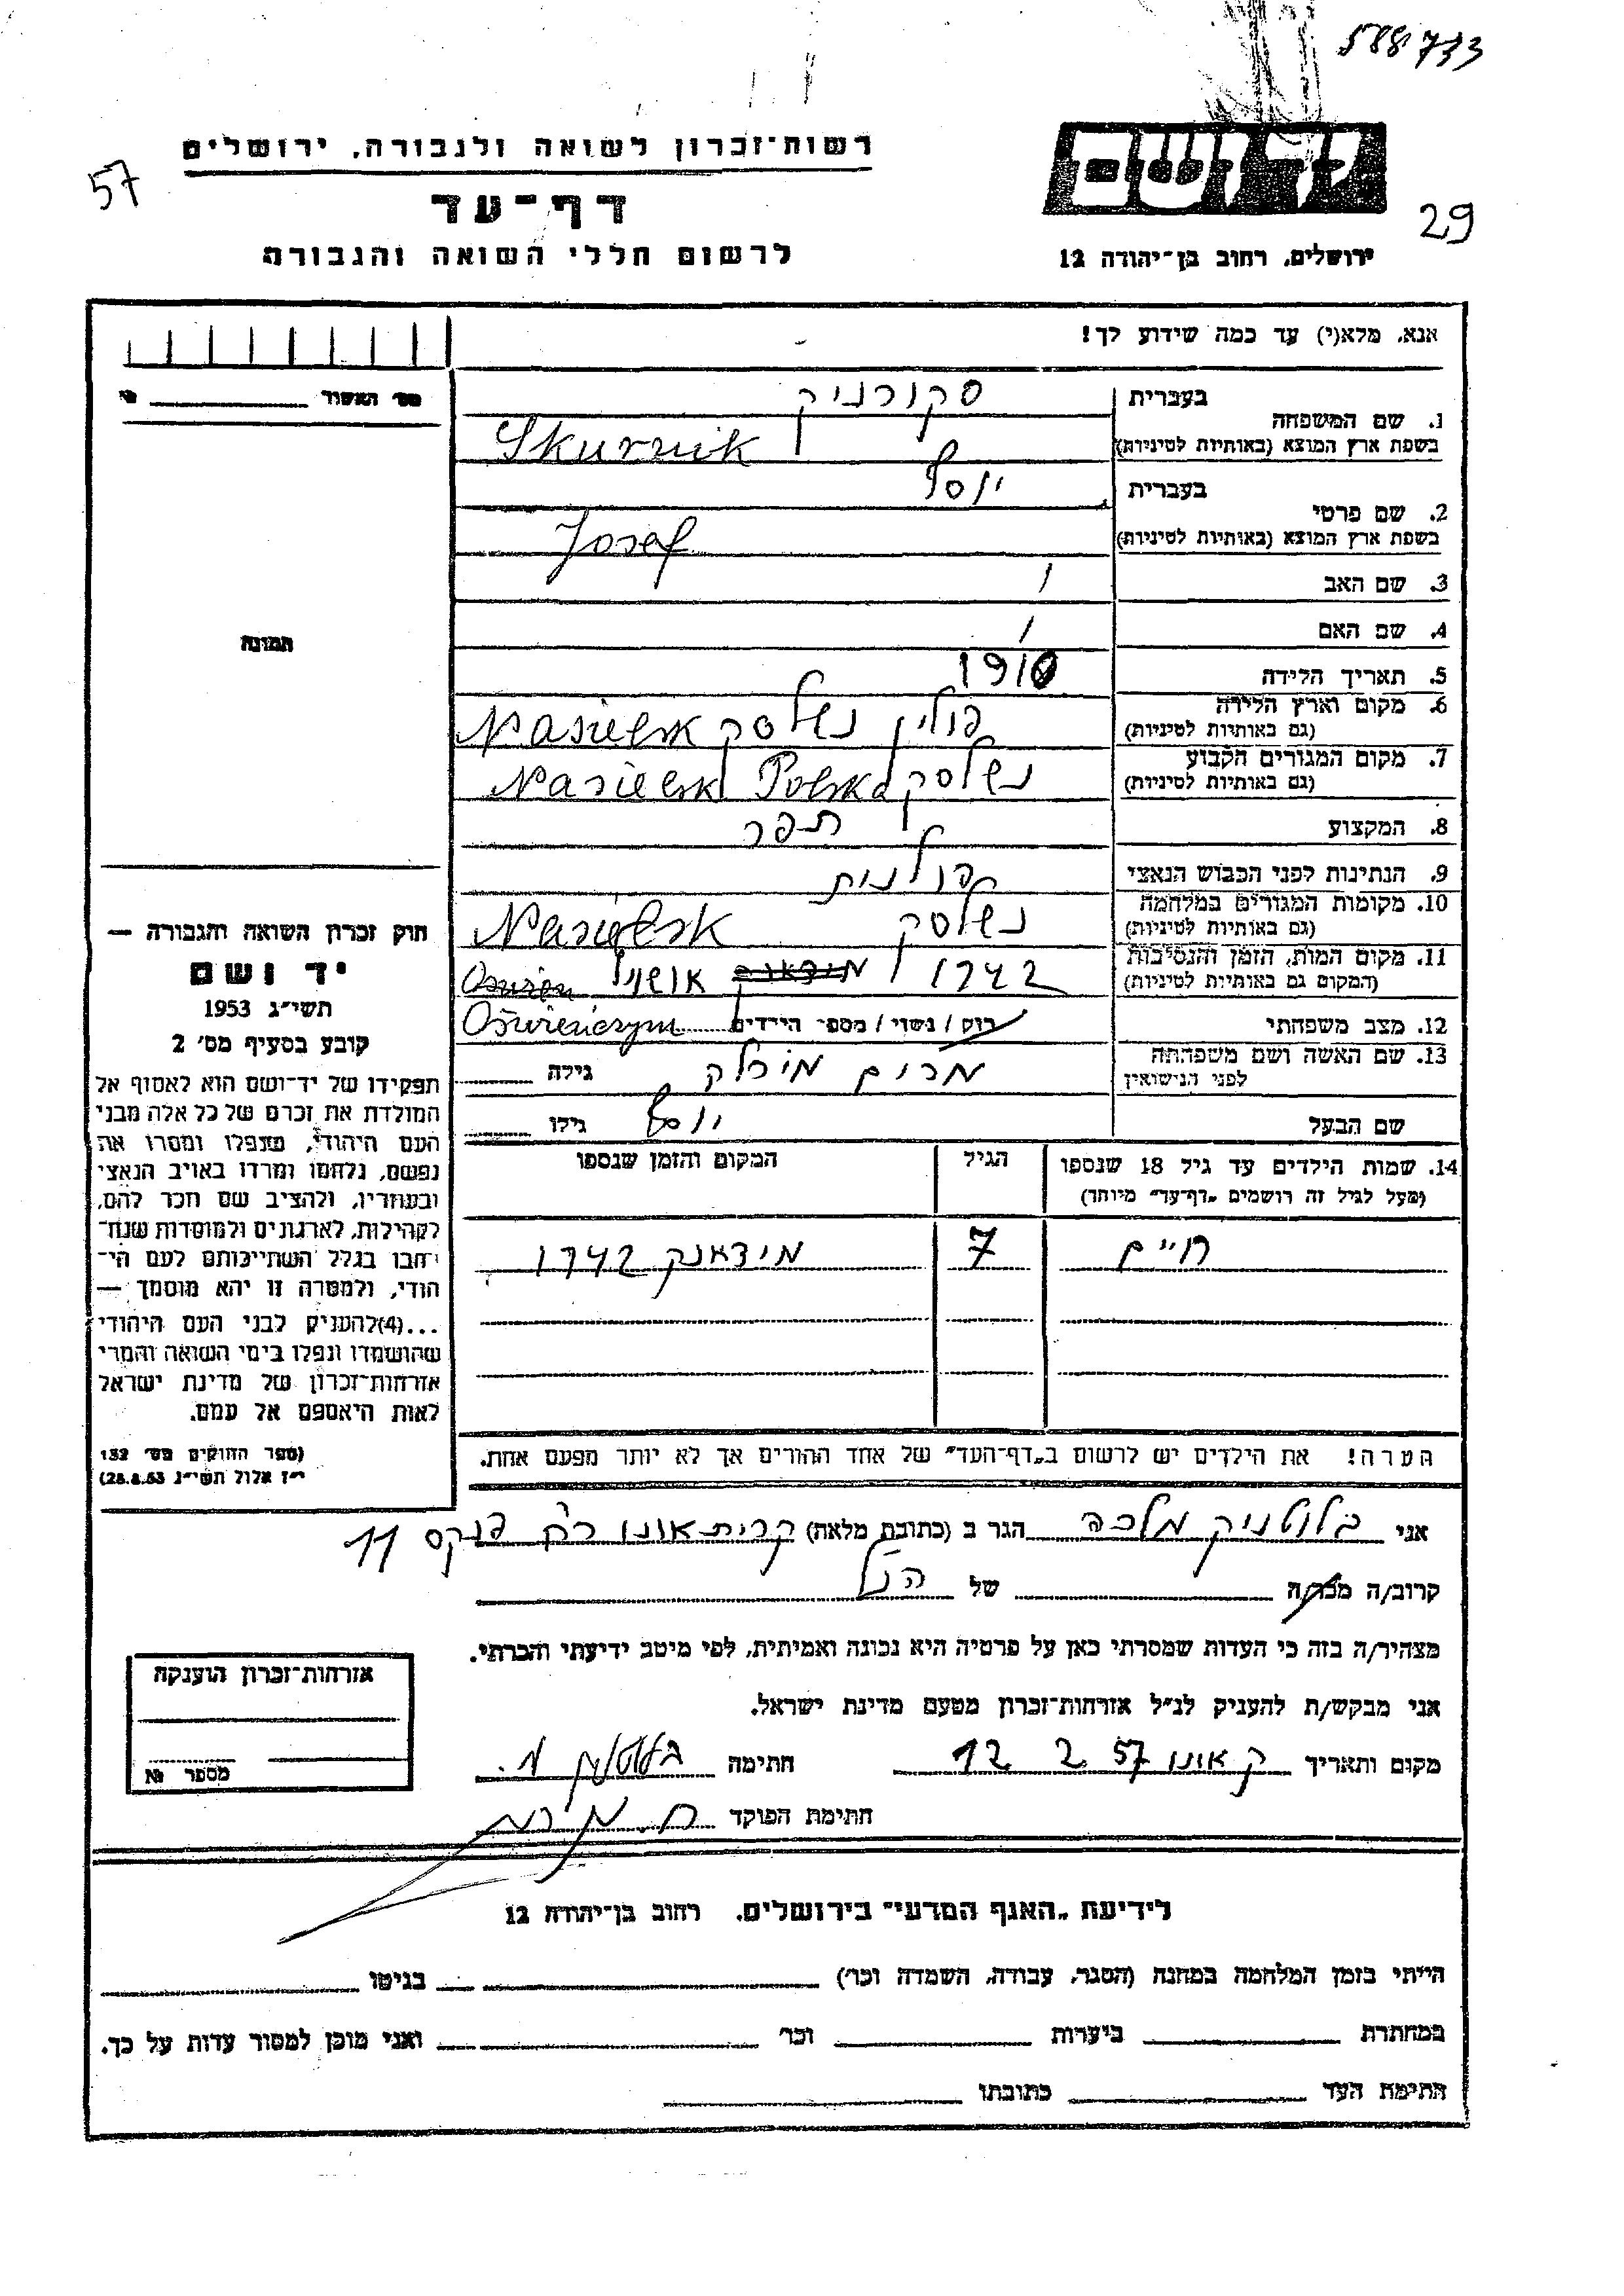 588733
רשות־זכרון לשואה ולגבורה, ירושלים
57
דף־עד
29
לרשום חללי השואה והגבורה
ירושלים, רחוב בן־יהודה 12
אנא, מלא(י) עד כמה שידוע לך!
מס׳ האשור
בעברית סקורניק
1. שם המשפחה
בשפת ארץ המוצא (באותיות לטיניות) Skurnik
בעברית יוסף
2. שם פרטי
בשפת ארץ המוצא (באותיות לטיניות) Josef
3. שם האב /
4. שם האם /
תמונה
5. תאריך הלידה 1910
6. מקום וארץ הלידה
(גם באותיות לטיניות) פולין נשלסק Nasielsk
7. מקום המגורים הקבוע
(גם באותיות לטיניות) נשלסק Nasielsk Polska
8. המקצוע תפר
9. הנתינות לפני הכבוש הנאצי פולנית
10. מקומות המגורים במלחמה
(גם באותיות לטיניות) נשלסק Nasielsk
11. מקום המות, הזמן והנסיבות
(המקום גם באותיות לטיניות) 1942 מידאנק
12. מצב משפחתי רוק / נשוי / מספר הילדים Oświenczym
13. שם האשה ושם משפחתה
לפני הנישואין מרים גילה
שם הבעל יוסף גילו
14. שמות הילדים עד גיל 18 שנספו הגיל המקום והזמן שנספו
(מעל לגיל זה רושמים „דף־עד״ מיוחד)
חיים 7 מידאנק 1942
הערה! את הילדים יש לרשום ב„דף־העד״ של אחד ההורים אך לא יותר מפעם אחת.
חוק זכרון השואה והגבורה —
יד ושם
תשי״ג 1953
קובע בסעיף מס׳ 2
תפקידו של יד־ושם הוא לאסוף אל
המולדת את זכרם של כל אלה מבני
העם היהודי, שנפלו ומסרו את
נפשם, נלחמו ומרדו באויב הנאצי
ובעוזריו, ולהציב שם וזכר להם,
לקהילות, לארגונים ולמוסדות שנח־
רבו בגלל השתייכותם לעם הי־
הודי, ולמטרה זו יהא מוסמך —
...(4)להעניק לבני העם היהודי
שהושמדו ונפלו בימי השואה והמרי
אזרחות־זכרון של מדינת ישראל
לאות היאספם אל עמם.
(ספר החוקים מס׳ 132
י״ז אלול תשי״ג 28.8.53)
אני בלוטניק מלכה הגר ב (כתובת מלאה) קרית אונו רח פנקס 11
קרוב/ה מכר/ה של הנ״ל
מצהיר/ה בזה כי העדות שמסרתי כאן על פרטיה היא נכונה ואמיתית, לפי מיטב ידיעתי והכרתי.
אני מבקש/ת להעניק לנ״ל אזרחות־זכרון מטעם מדינת ישראל.
מקום ותאריך ק אונו 12 2 57 חתימה
חתימת הפוקד
אזרחות־זכרון הוענקה
מספר №
לידיעת „האגף המדעי״ בירושלים, רחוב בן־יהודה 12
הייתי בזמן המלחמה במחנה (הסגר, עבודה, השמדה וכו׳) בגיטו
במחתרת ביערות וכו׳ ואני מוכן למסור עדות על כך.
חתימת העד כתובתו